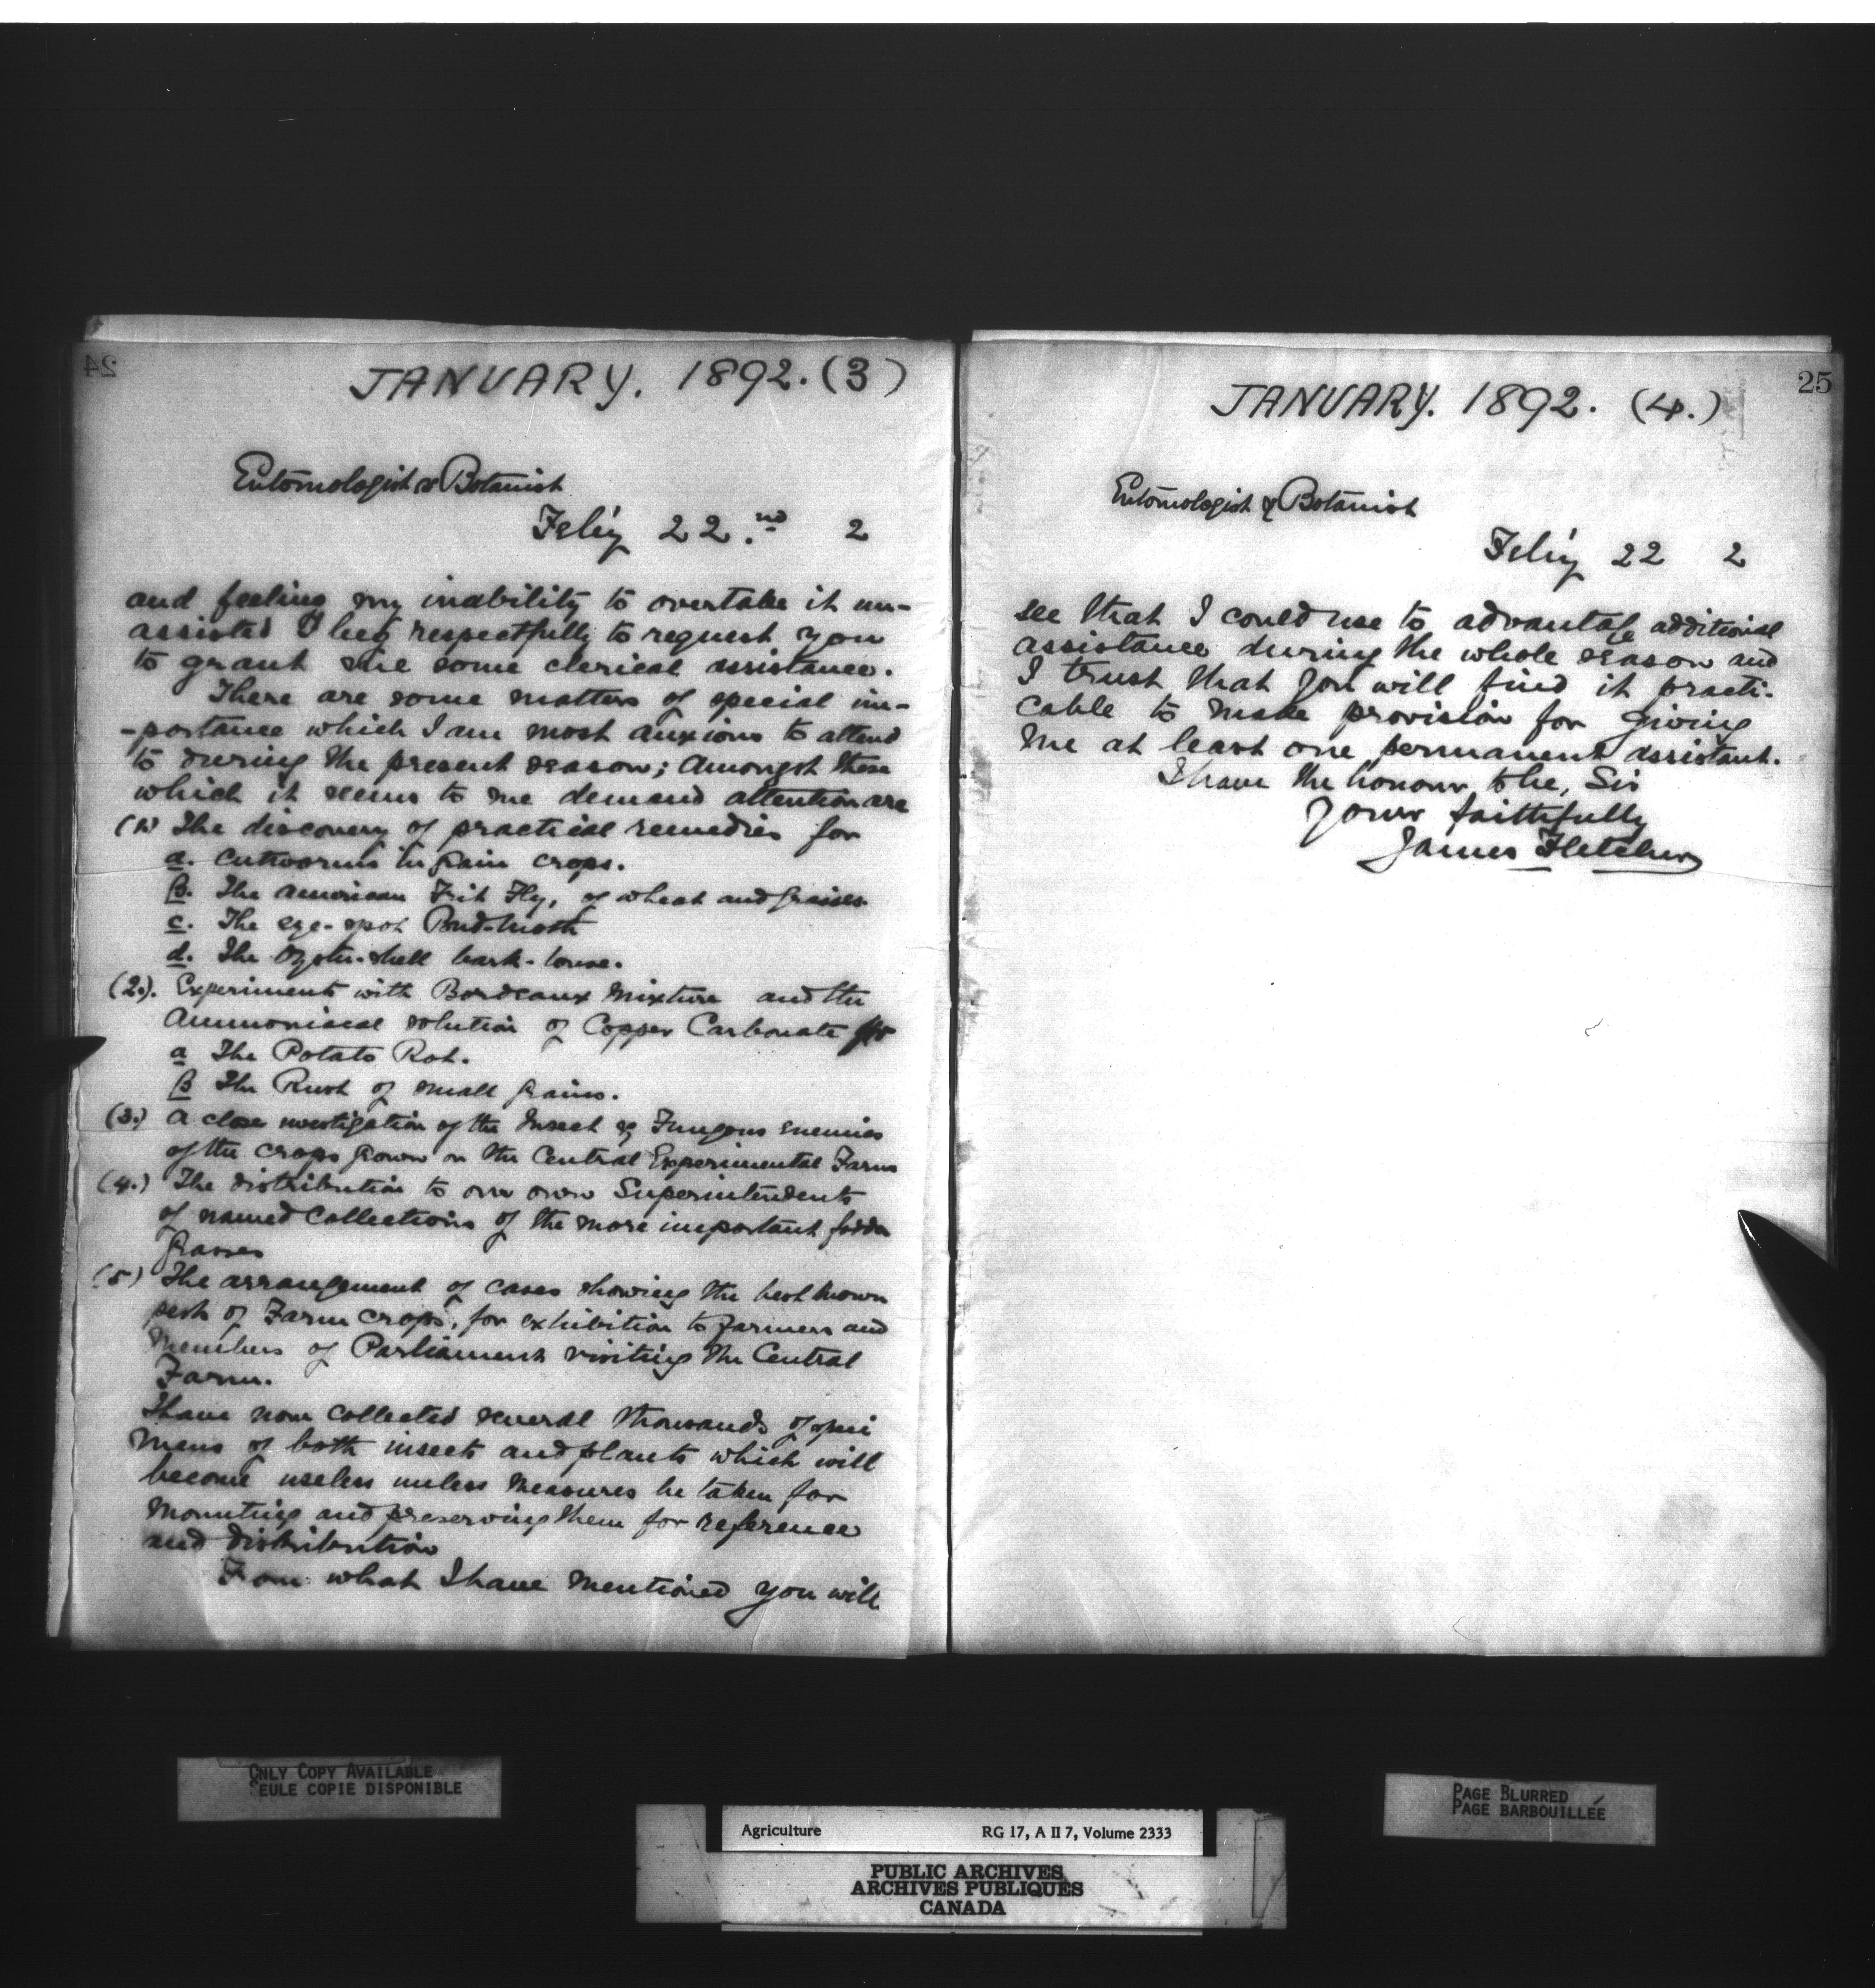 24
JANUARY. 1892. (3)
Entomologist & Botanist
Feby 22.nd 2
and feeling my inability to overtake it un-
assisted I beg respectfully to request you
to grant me some clerical assistance.
There are some matters of special im-
-portance which I am most anxious to attend
to during the present season; Amongst these
which it seems to me demand attention are
(1) The discovery of practical remedies for
a. Cutworms in grain crops.
B. The American Frit Fly, of wheat and grasses.
c. The eye-spot Bud-moth
d. The Oyster-shell bark-louse.
(2.). Experiments with Bordeaux Mixture and the
Ammoniacal solution of Copper Carbonate for
a The Potato Rot.
B The Rust of small grains.
(3.) A close investigation of the Insect & Fungous enemies
of the crops grown on the Central Experimental Farm
(4.) The distribution to our own Superintendents
of named collections of the more important fodder
grasses
(5) The arrangement of cases showing the best known
pests of Farm crops, for exhibition to farmers and
Members of Parliament visiting the Central
Farm.
I have now collected several thousands of speci
mens of both insects and plants which will
become useless unless measures be taken for
mounting and preserving them for reference
and distribution
From what I have mentioned you will
25
JANUARY. 1892. (4.)
Entomologist & Botanist
Feby 22 2
see that I could use to advantage additional
assistance during the whole season and
I trust that you will find it practi-
cable to make provision for giving
me at least one permanent assistant.
I have the honour to be, Sir
Yours faithfully
James Fletcher
ONLY COPY AVAILABLE
SEULE COPIE DISPONIBLE
PAGE BLURRED
PAGE BARBOUILLÉE
Agriculture RG 17, A II 7, Volume 2333
PUBLIC ARCHIVES
ARCHIVES PUBLIQUES
CANADA